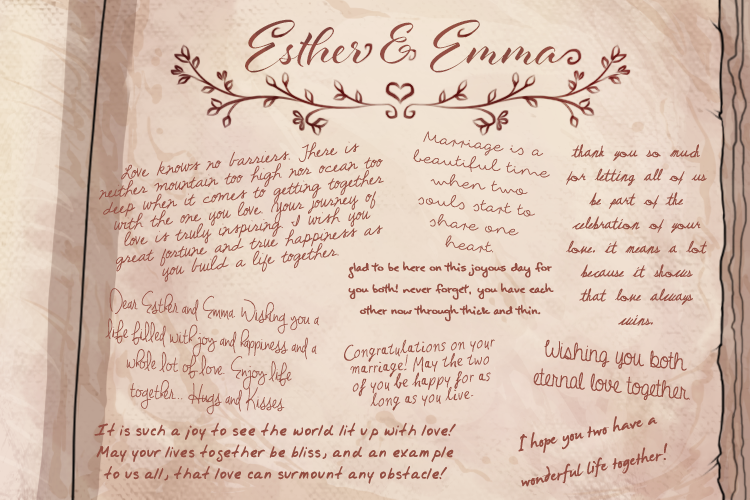 Esther & Emma
Love knows no barriers. There is
neither mountain too high nor ocean too
deep when it comes to getting together
with the one you love. Your journey of
love is truly inspiring. I wish you
great fortune and true happiness as
you build a life together.
Marriage is a
beautiful time
when two
souls start to
share one
heart.
thank you so much
for letting all of us
be part of the
celebration of your
love. it means a lot
because it shows
that love always
wins.
glad to be here on this joyous day for
you both! never forget, you have each
other now through thick and thin.
Dear Esther and Emma Wishing you a
life filled with joy and happiness and a
whole lot of love. Enjoy life
together... Hugs and Kisses
Congratulations on your
marriage! May the two
of you be happy for as
long as you live.
Wishing you both
eternal love together
It is such a joy to see the world lit up with love!
May your lives together be bliss, and an example
to us all, that love can surmount any obstacle!
I hope you two have a
wonderful life together!